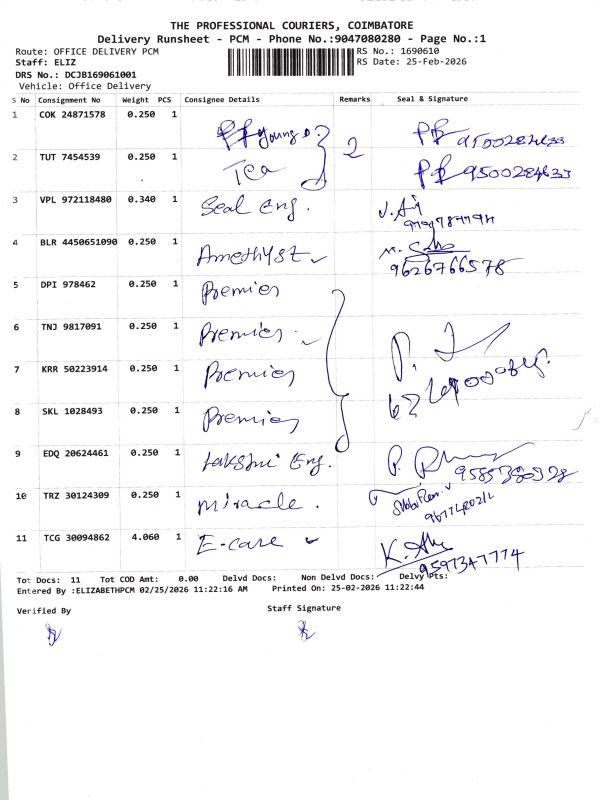 THE PROFESSIONAL COURIERS, COIMBATORE
Delivery Runsheet - PCM - Phone No.:9047080280 - Page No.:1
Route: OFFICE DELIVERY PCM
RS No.: 1690610
Staff: ELIZ
RS Date: 25-Feb-2026
DRS No.: DCJB169061001
Vehicle: Office Delivery
S No Consignment No Weight PCS Consignee Details Remarks Seal & Signature
1 COK 24871578 0.250 1 2 9500284633
2 TUT 7454539 0.250 1 Tea 9500284633
3 VPL 972118480 0.340 1 Seal Eng.
4 BLR 4450651090 0.250 1 Amethyst
9626766578
5 DPI 978462 0.250 1 Premier
6 TNJ 9817091 0.250 1 Premier
7 KRR 50223914 0.250 1 Premier
8 SKL 1028493 0.250 1 Premier
9 EDQ 20624461 0.250 1 Lakshmi Eng.
10 TRZ 30124309 0.250 1 Miracle.
11 TCG 30094862 4.060 1 E-care
9597347774
Tot Docs: 11 Tot COD Amt: 0.00 Delvd Docs: Non Delvd Docs: Delvy Pts:
Entered By :ELIZABETHPCM 02/25/2026 11:22:16 AM Printed On: 25-02-2026 11:22:44
Verified By Staff Signature